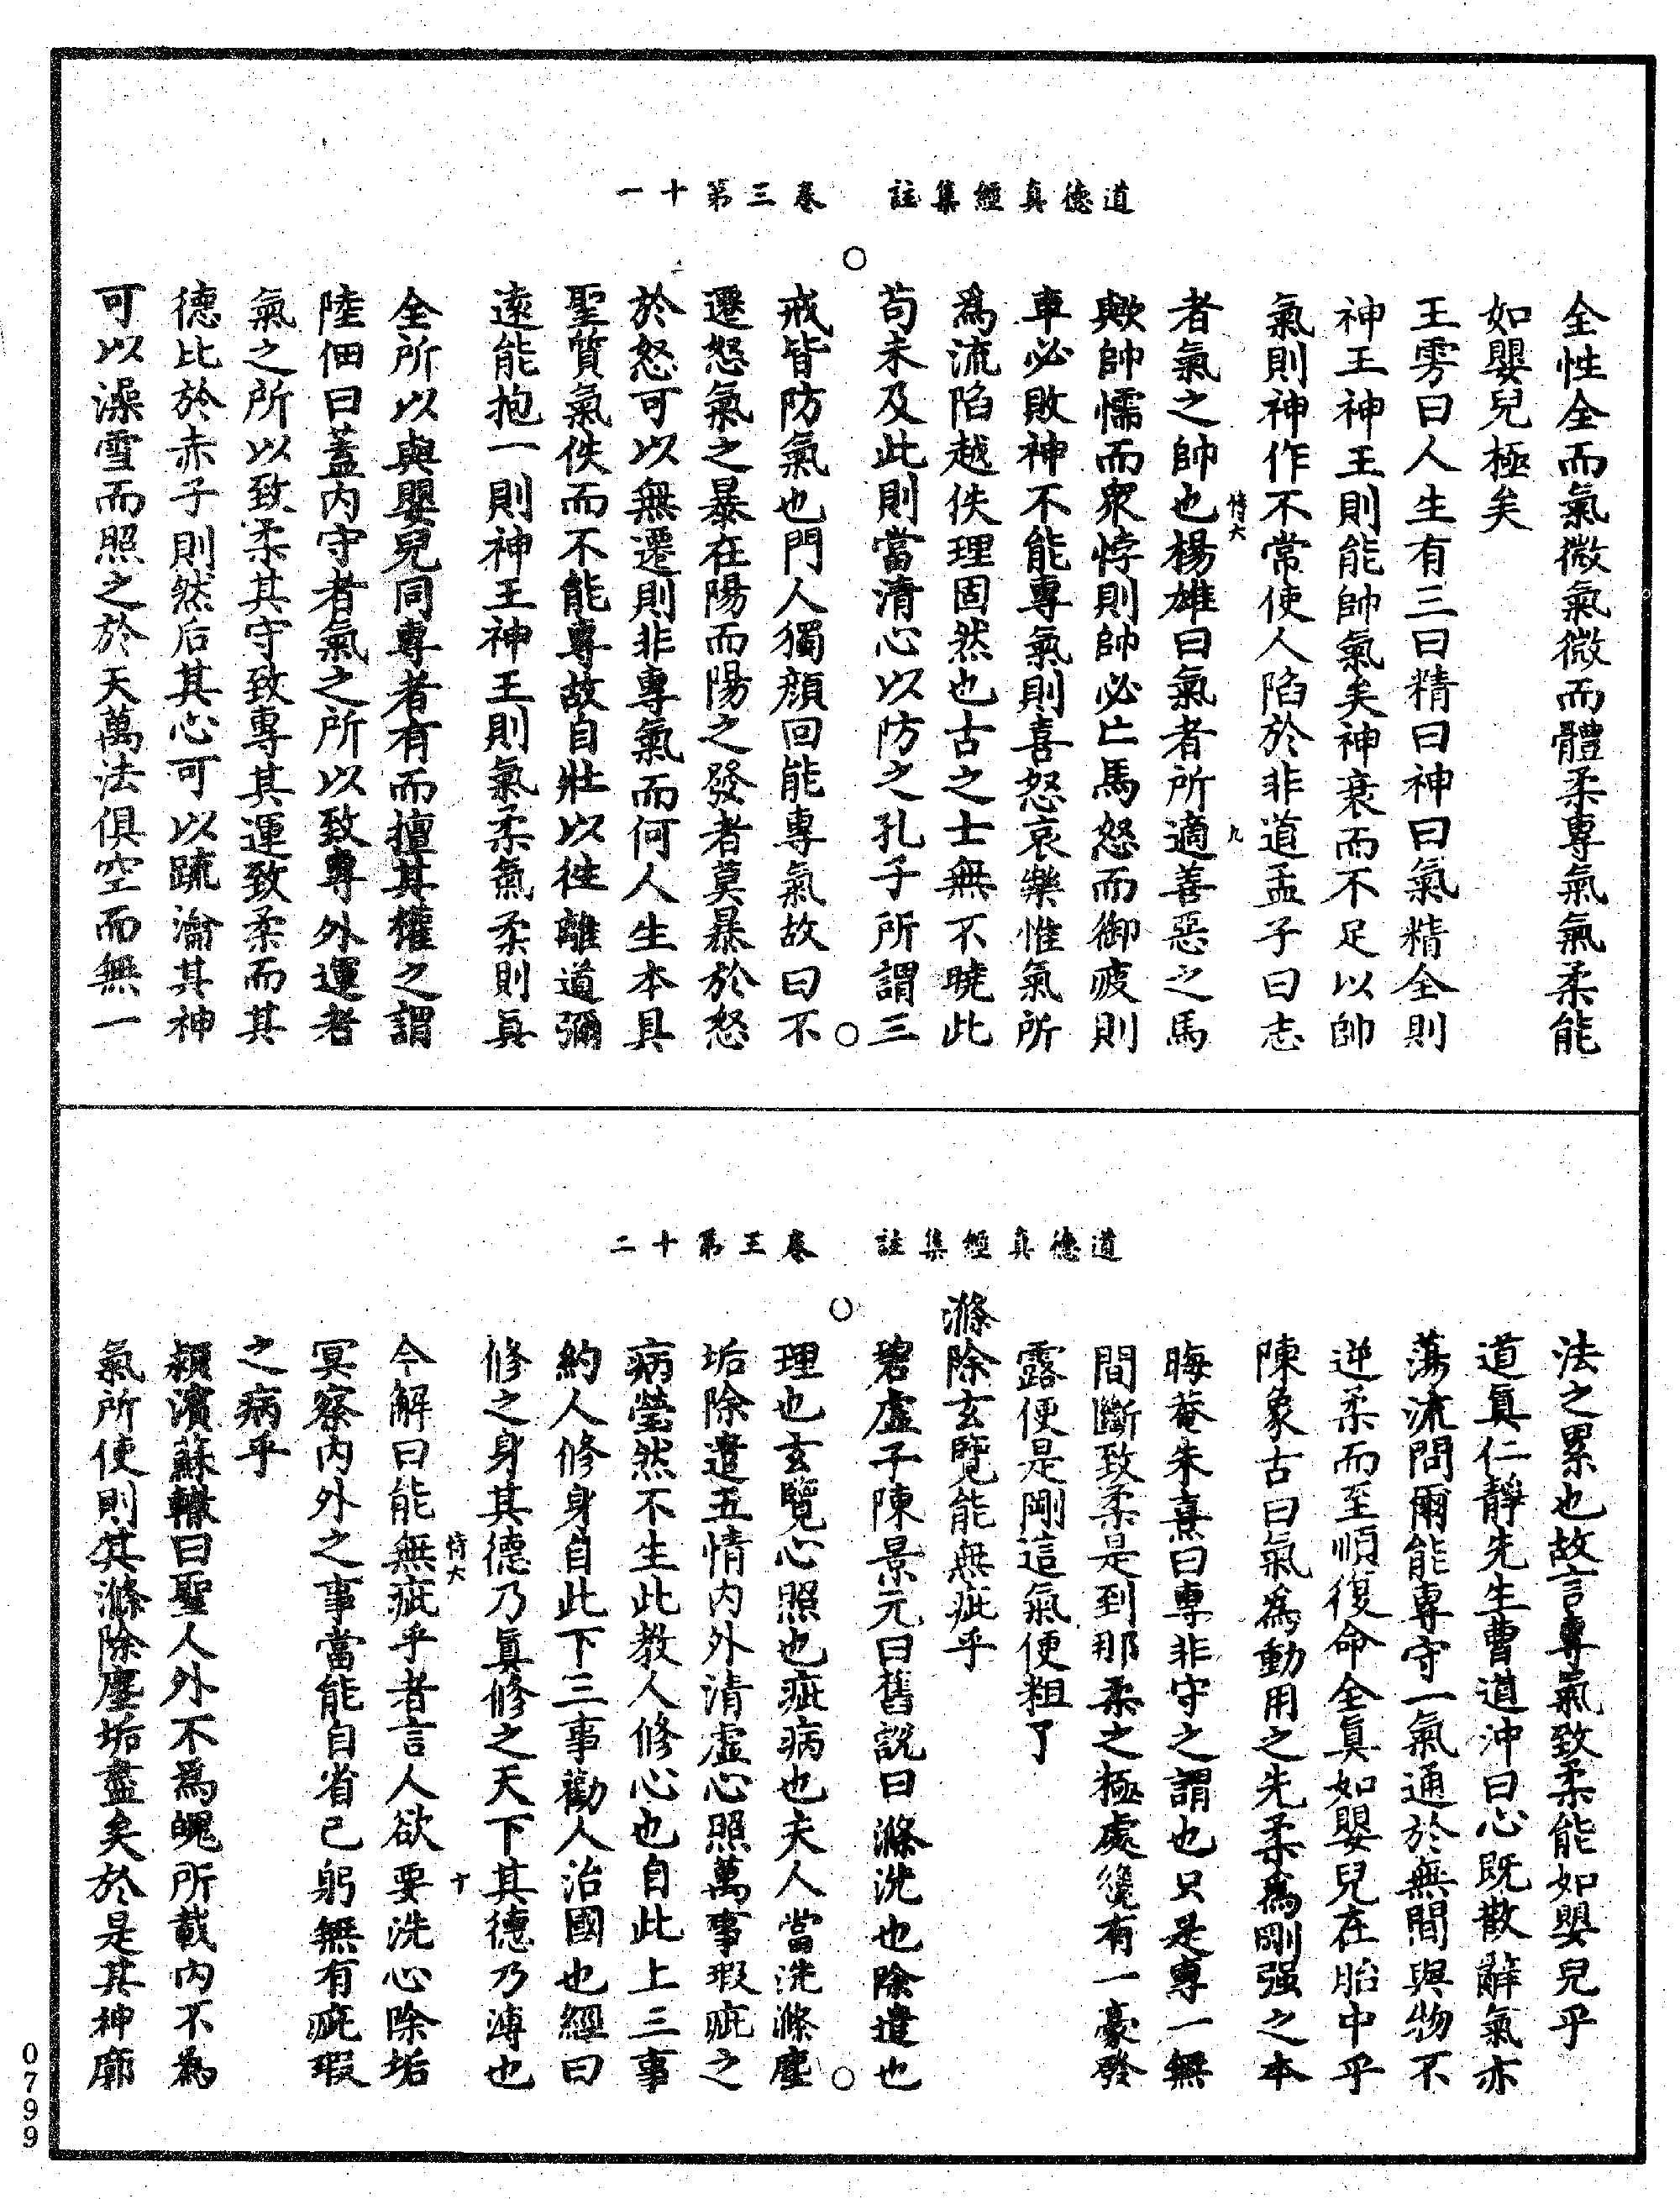 道德真經集註　卷三第十一
全性全而氣微氣微而體柔專氣氣柔能
如嬰兒極矣
王雱曰人生有三曰精曰神曰氣精全則
神王神王則能帥氣矣神衰而不足以帥
氣則神作不常使人陷於非道孟子曰志
者氣之帥也楊雄曰氣者所適善惡之馬
歟帥懦而衆悖則帥必亡馬怒而御疲則
車必敗神不能專氣則喜怒哀樂惟氣所
爲流陷越佚理固然也古之士無不曉此
苟未及此則當清心以防之孔子所謂三
戒皆防氣也門人獨顔回能專氣故曰不
遷怒氣之暴在陽而陽之發者莫暴於怒
於怒可以無遷則非專氣而何人生本具
聖質氣佚而不能專故自壯以徃離道彌
遠能抱一則神王神王則氣柔氣柔則眞
全所以與嬰兒同專者有而擅其權之謂
陸佃曰蓋内守者氣之所以致專外運者
氣之所以致柔其守致專其運致柔而其
德比於赤子則然后其心可以疏瀹其神
可以澡雪而照之於天萬法俱空而無一
恃六
九
道德真經集註　卷三第十二
法之累也故言專氣致柔能如嬰兒乎
道眞仁靜先生曹道沖曰心既散辭氣亦
蕩流問爾能專守一氣通於無間與物不
逆柔而至順復命全眞如嬰兒在胎中乎
陳象古曰氣爲動用之先柔爲剛强之本
晦菴朱熹曰專非守之謂也只是專一無
間斷致柔是到那柔之極處纔有一豪發
露便是剛這氣便粗了
滌除玄覽能無疵乎
碧虚子陳景元曰舊説曰滌洗也除遣也
理也玄覽心照也疵病也夫人當洗滌塵
垢除遣五情内外清虚心照萬事瑕疵之
病瑩然不生此教人修心也自此上三事
約人修身自此下三事勸人治國也經曰
修之身其德乃眞修之天下其德乃溥也
今解曰能無疵乎者言人欲要洗心除垢
冥察内外之事當能自省己躬無有疵瑕
之病乎
頴濱蘇轍曰聖人外不爲魄所載内不爲
氣所使則其滌除塵垢盡矣於是其神廓
恃六
十
0799